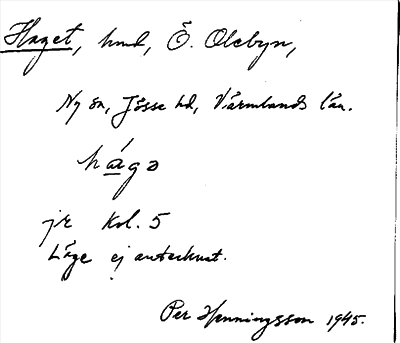 Haget, hmd, Ö. Olebyn,
Ny sn, Jösse hd, Värmlands län.
hágə
jr Kol. 5
Läge ej antecknat.
Per Henningsson 1945.